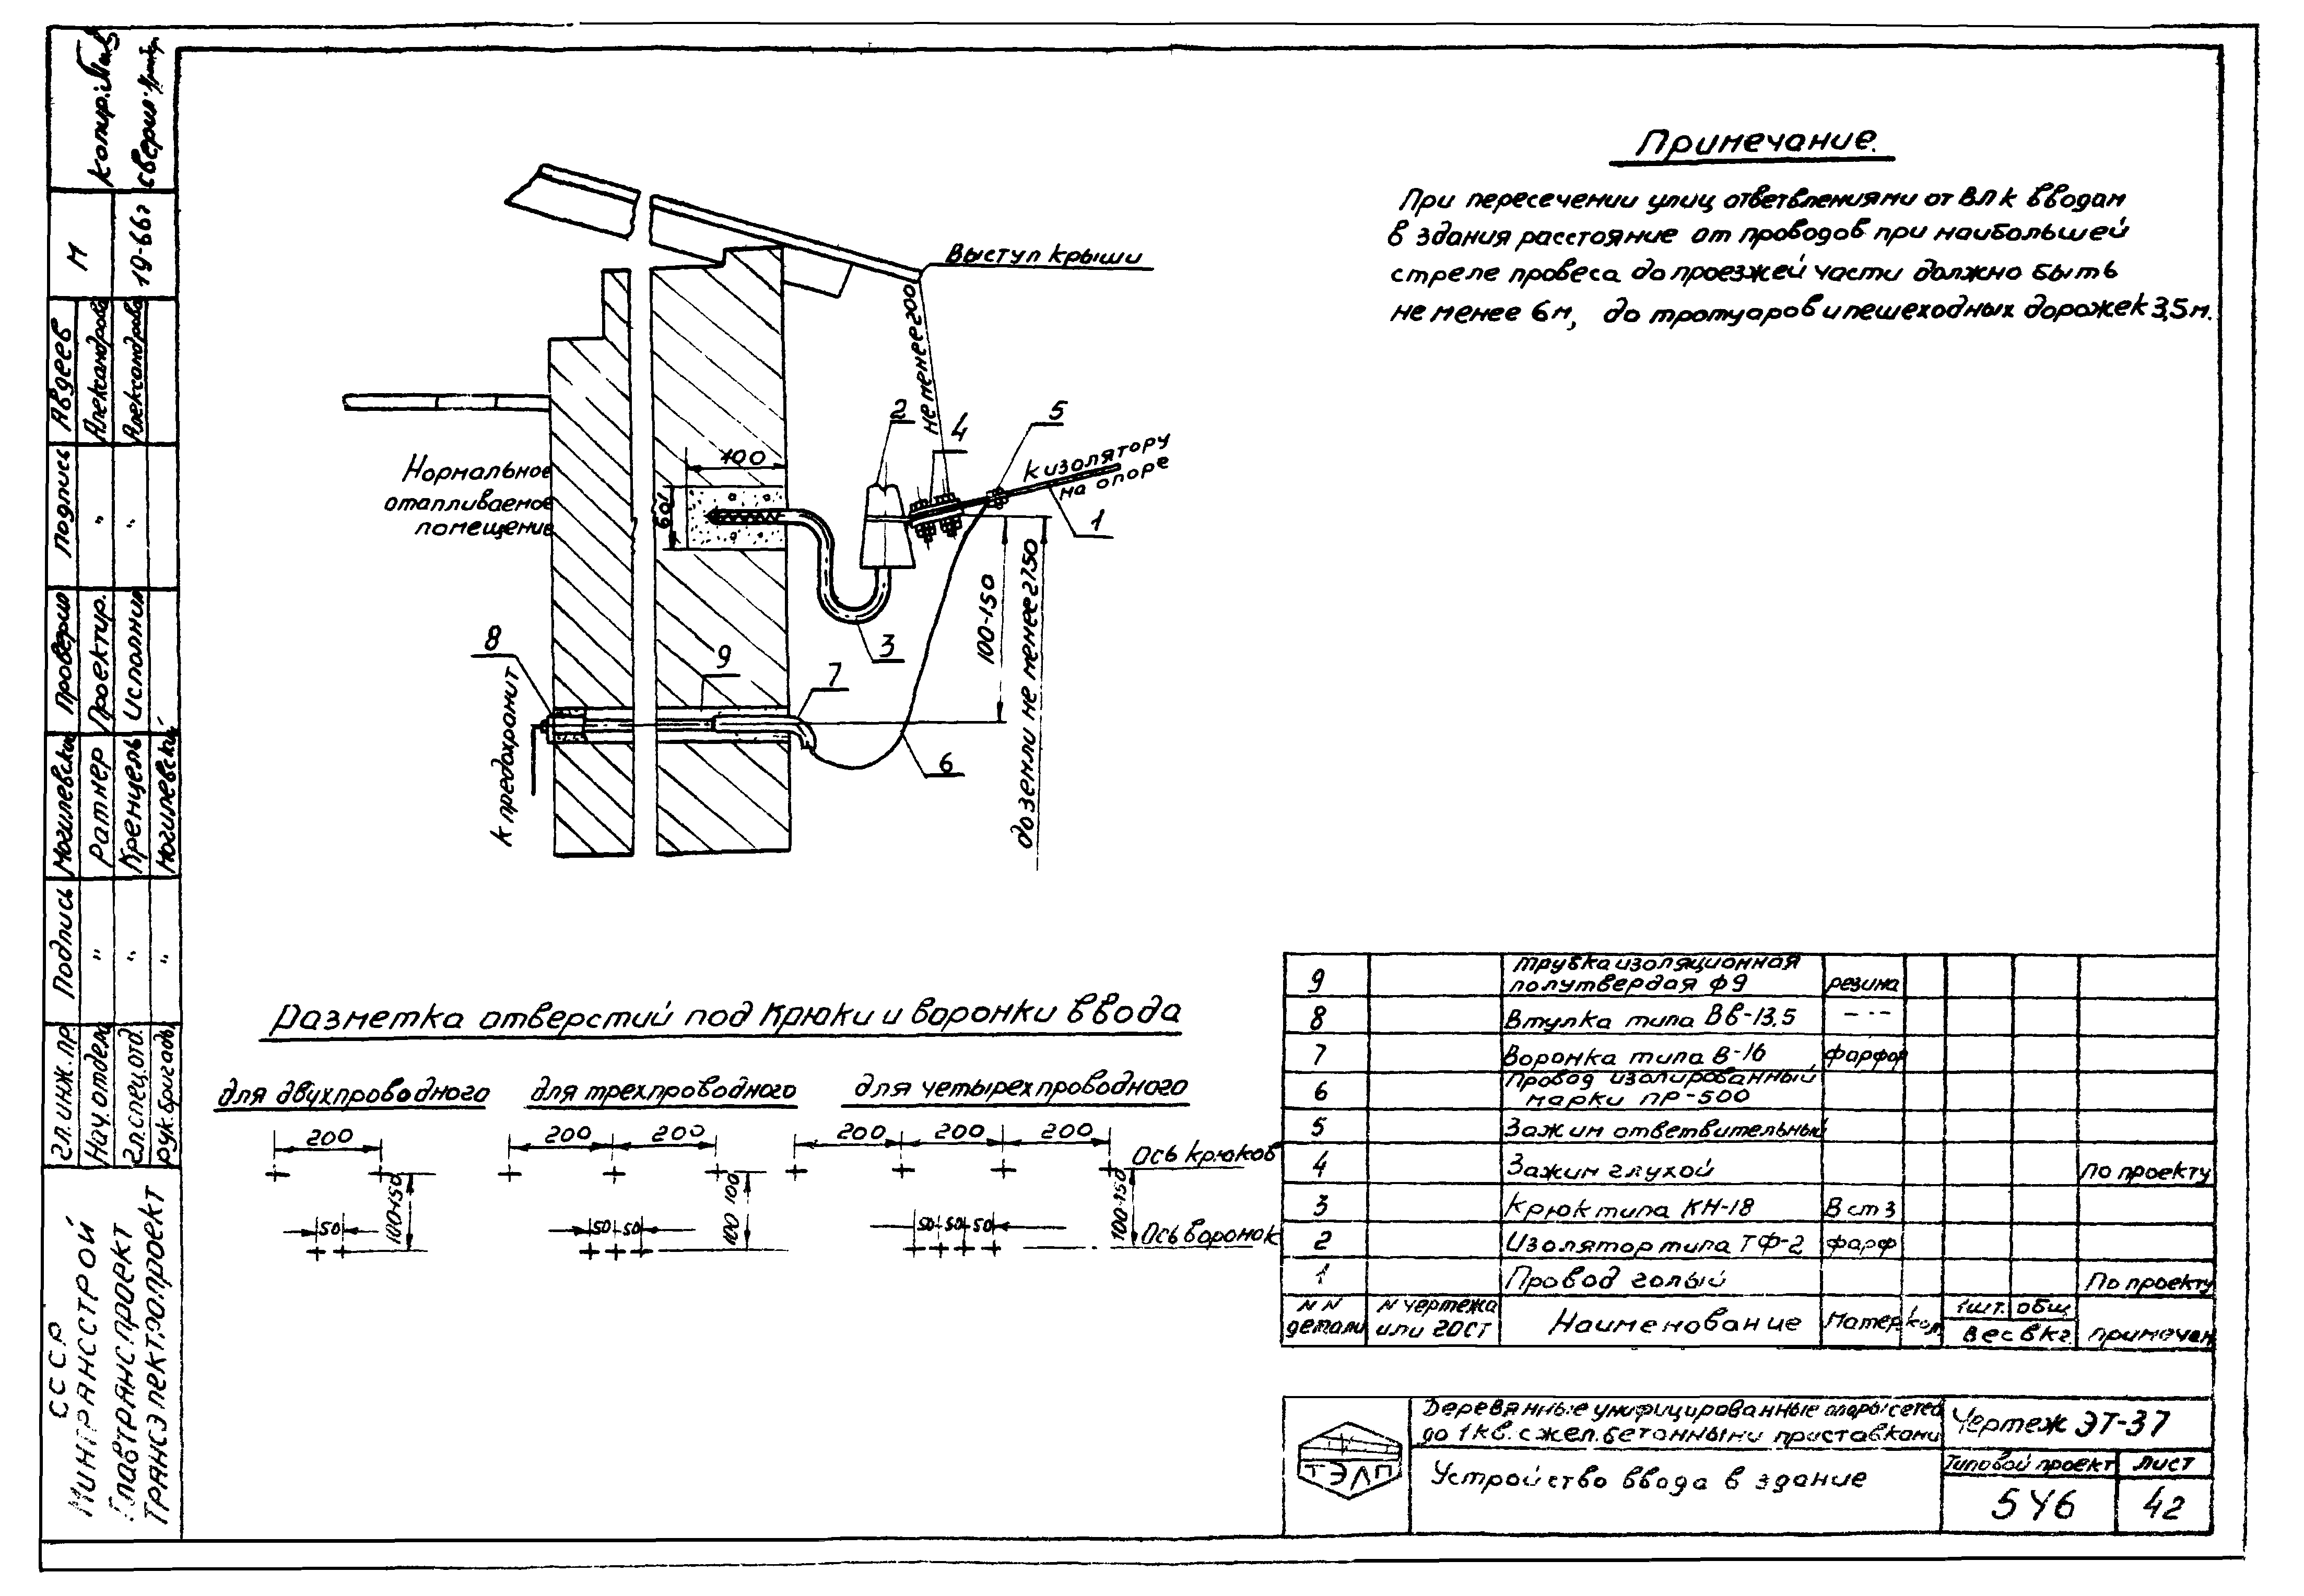 Примечание.
При пересечении улиц ответвлениями от ВЛ к вводам
в здания расстояние от проводов при наибольшей
стреле провеса до проезжей части должно быть
не менее 6м, до тротуаров и пешеходных дорожек 3,5м.
Выступ крыши
не менее 200
2
4
5
к изолятору
на опоре
1
100
60
Нормальное
отапливаемое
помещение
3
100-150
до земли не менее 2750
8
9
7
6
к предохранит
Разметка отверстий под крюки и воронки ввода
для двухпроводного
для трехпроводного
для четырехпроводного
200
200
200
200
200
200
Ось крюков
100-150
100 100
100-150
50
50 50
50 50 50
Ось воронок
9 трубка изоляционная полутвердая ф9 резина
8 Втулка типа ВВ-13,5 – ·· –
7 Воронка типа В-16 фарфор
6 Провод изолированный марки ПР-500
5 Зажим ответвительный
4 Зажим глухой по проекту
3 Крюк типа КН-18 В ст 3
2 Изолятор типа ТФ-2 фарф
1 Провод голый По проекту
NN детали N чертежа или ГОСТ Наименование Матер кол. 1шт. общ. вес в кг. примечан
ТЭЛП
Деревянные унифицированные опоры сетей
до 1кв. с жел. бетонными приставками
Чертеж ЭТ-37
Устройство ввода в здание
Типовой проект
Лист
546
42
копир:
сверил:
М
19-66г
Авдеев
Александрова
Александрова
Подпись
"
"
Проверил
Проектир.
Исполнил
Могилевский
Ратнер
Кренцель
Могилевский
Подпись
"
"
"
Гл. инж. пр
Нач. отдела
Гл. спец. отд.
рук. бригады
СССР
Минтрансстрой
Главтранспроект
Трансэлектропроект